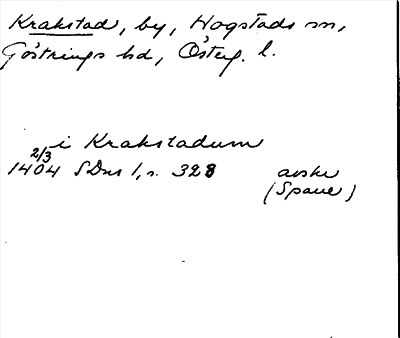 Krakstad, by, Hogstads sn,
Göstrings hd, Österg. l.
i Krakstadum
2/3
1404 SDns 1, s. 328 avskr
(Spaue)